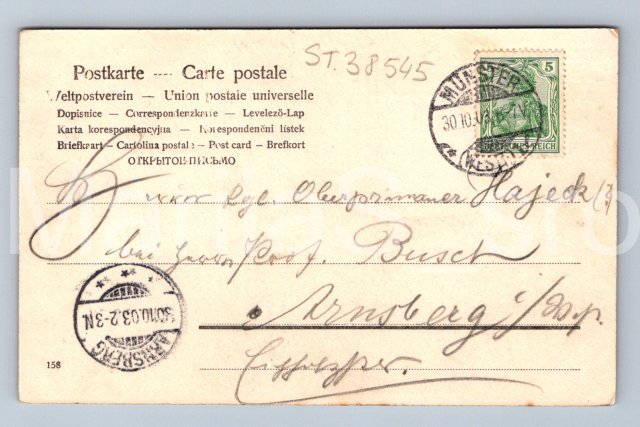 ST.38545
Postkarte — Carte postale
Weltpostverein — Union postale universelle
Dopisnice — Correspondenzkarte — Levelező-Lap
Karta korespondencyjna — Korespondenční lístek
Briefkaart — Cartolina postale — Post card — Brefkort
ОТКРЫТОЕ ПИСЬМО
5
DEUTSCHES REICH
MÜNSTER
30.10.03.
(WESTF.)
Herrn Oberprimaner Hajeck
bei Herrn Prof. Busch
Arnsberg i/W.
ARNSBERG
30.10.03.2-3N.
158